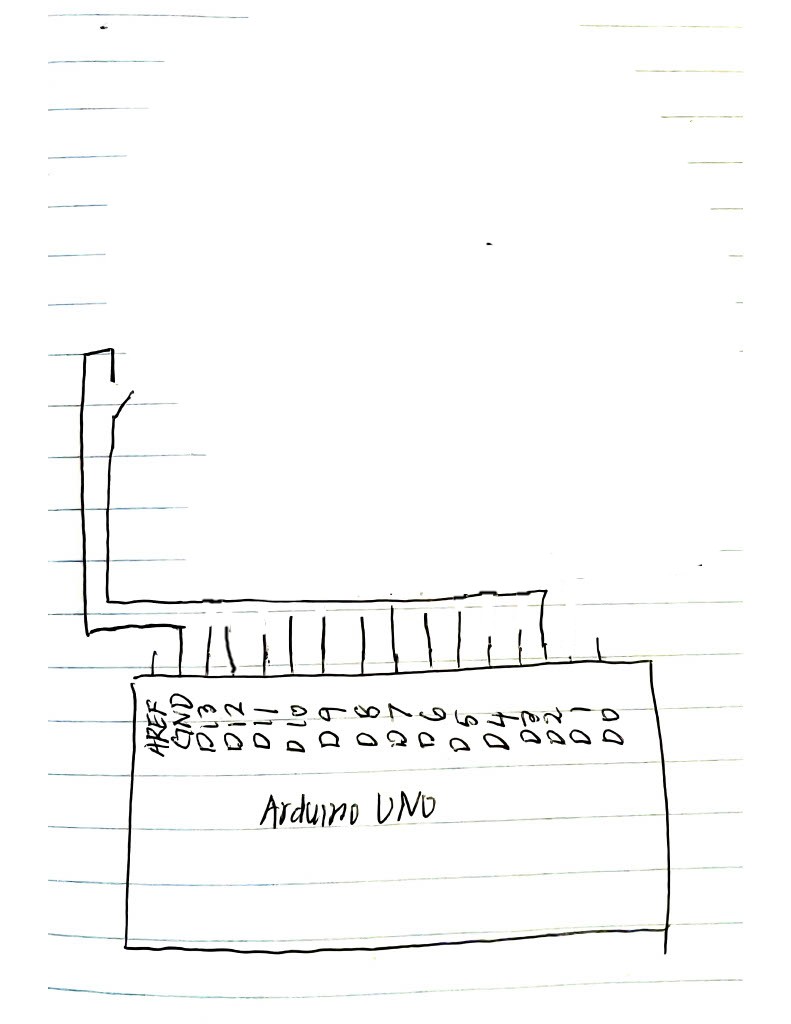 AREF
GND
D13
D12
D11
D10
D9
D8
D7
D6
D5
D4
D3
D2
D1
D0
Arduino UNO